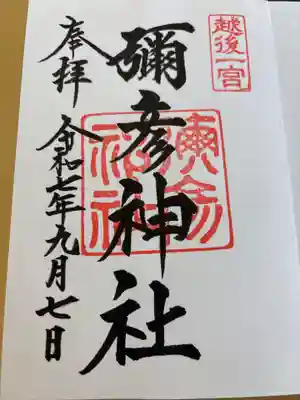 越後一宮
奉拝
彌彦神社
令和七年九月七日